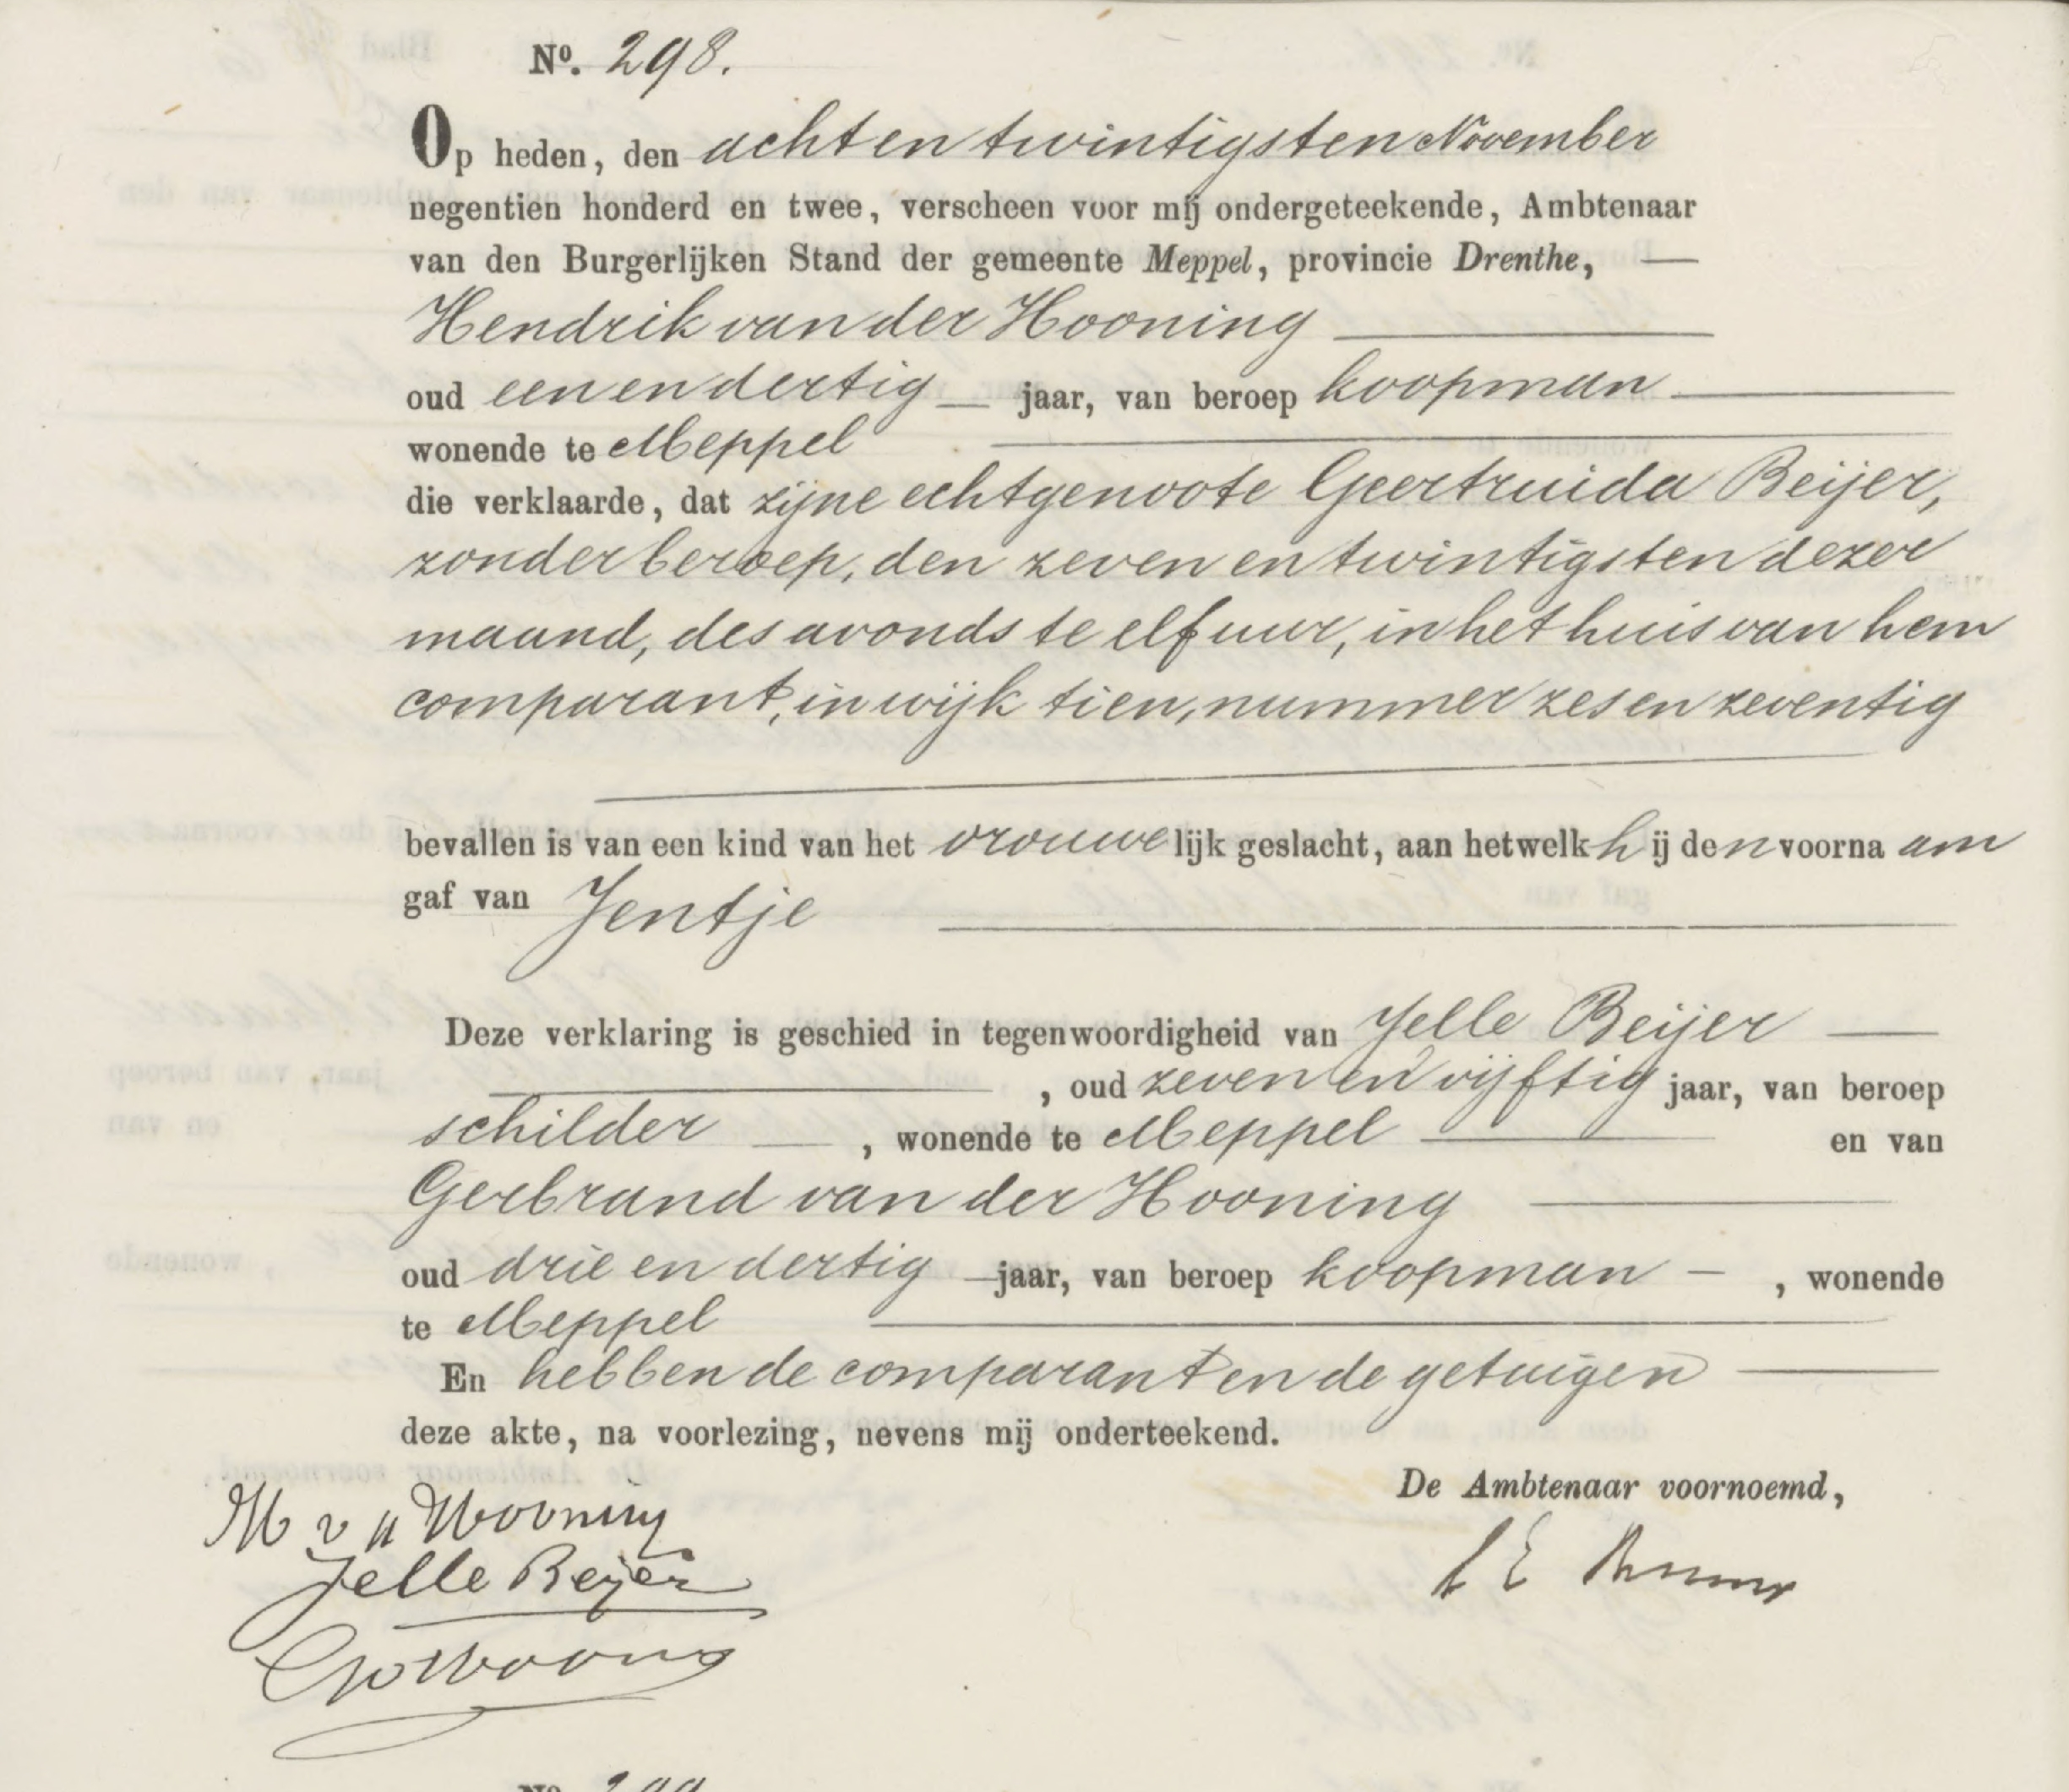 Nº. 298.
Op heden, den achtentwintigsten November
negentien honderd en twee, verscheen voor mij ondergeteekende, Ambtenaar
van den Burgerlijken Stand der gemeente Meppel, provincie Drenthe,
Hendrik van der Hooning
oud eenendertig jaar, van beroep koopman
wonende te Meppel
die verklaarde, dat zijne echtgenoote Geertruida Beijer,
zonder beroep, den zevenentwintigsten dezer
maand, des avonds te elf uur, in het huis van hem
comparant, in wijk tien, nummer zesenzeventig
bevallen is van een kind van het vrouwelijk geslacht, aan hetwelk hij den voornaam
gaf van Jentje
Deze verklaring is geschied in tegenwoordigheid van Jelle Beijer
, oud zevenenvijftig jaar, van beroep
schilder , wonende te Meppel en van
Gerbrand van der Hooning
oud drieendertig jaar, van beroep koopman , wonende
te Meppel
En hebben de comparant en de getuigen
deze akte, na voorlezing, nevens mij onderteekend.
De Ambtenaar voornoemd,
H v d Hooning
Jelle Beijer
Nº 299